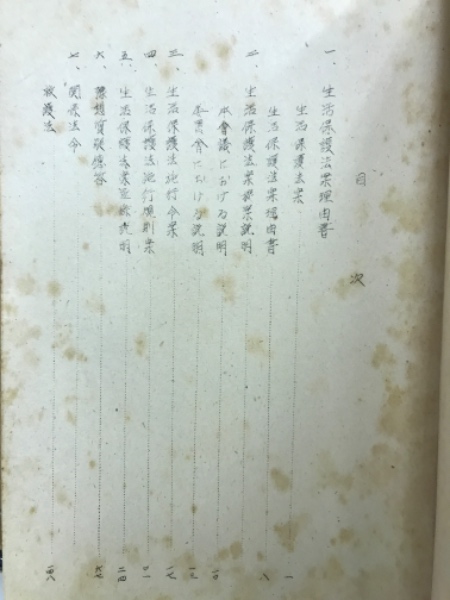 目次
一、生活保護法案理由書
生活保護法案 一
生活保護法案理由書 八
二、生活保護法案提案説明
本会議における説明 一〇
委員会における説明
三、生活保護法施行令案 一七
四、生活保護法施行規則案
五、生活保護法案逐條説明 二四
六、予想質疑應答 六七
七、関係法令
救護法